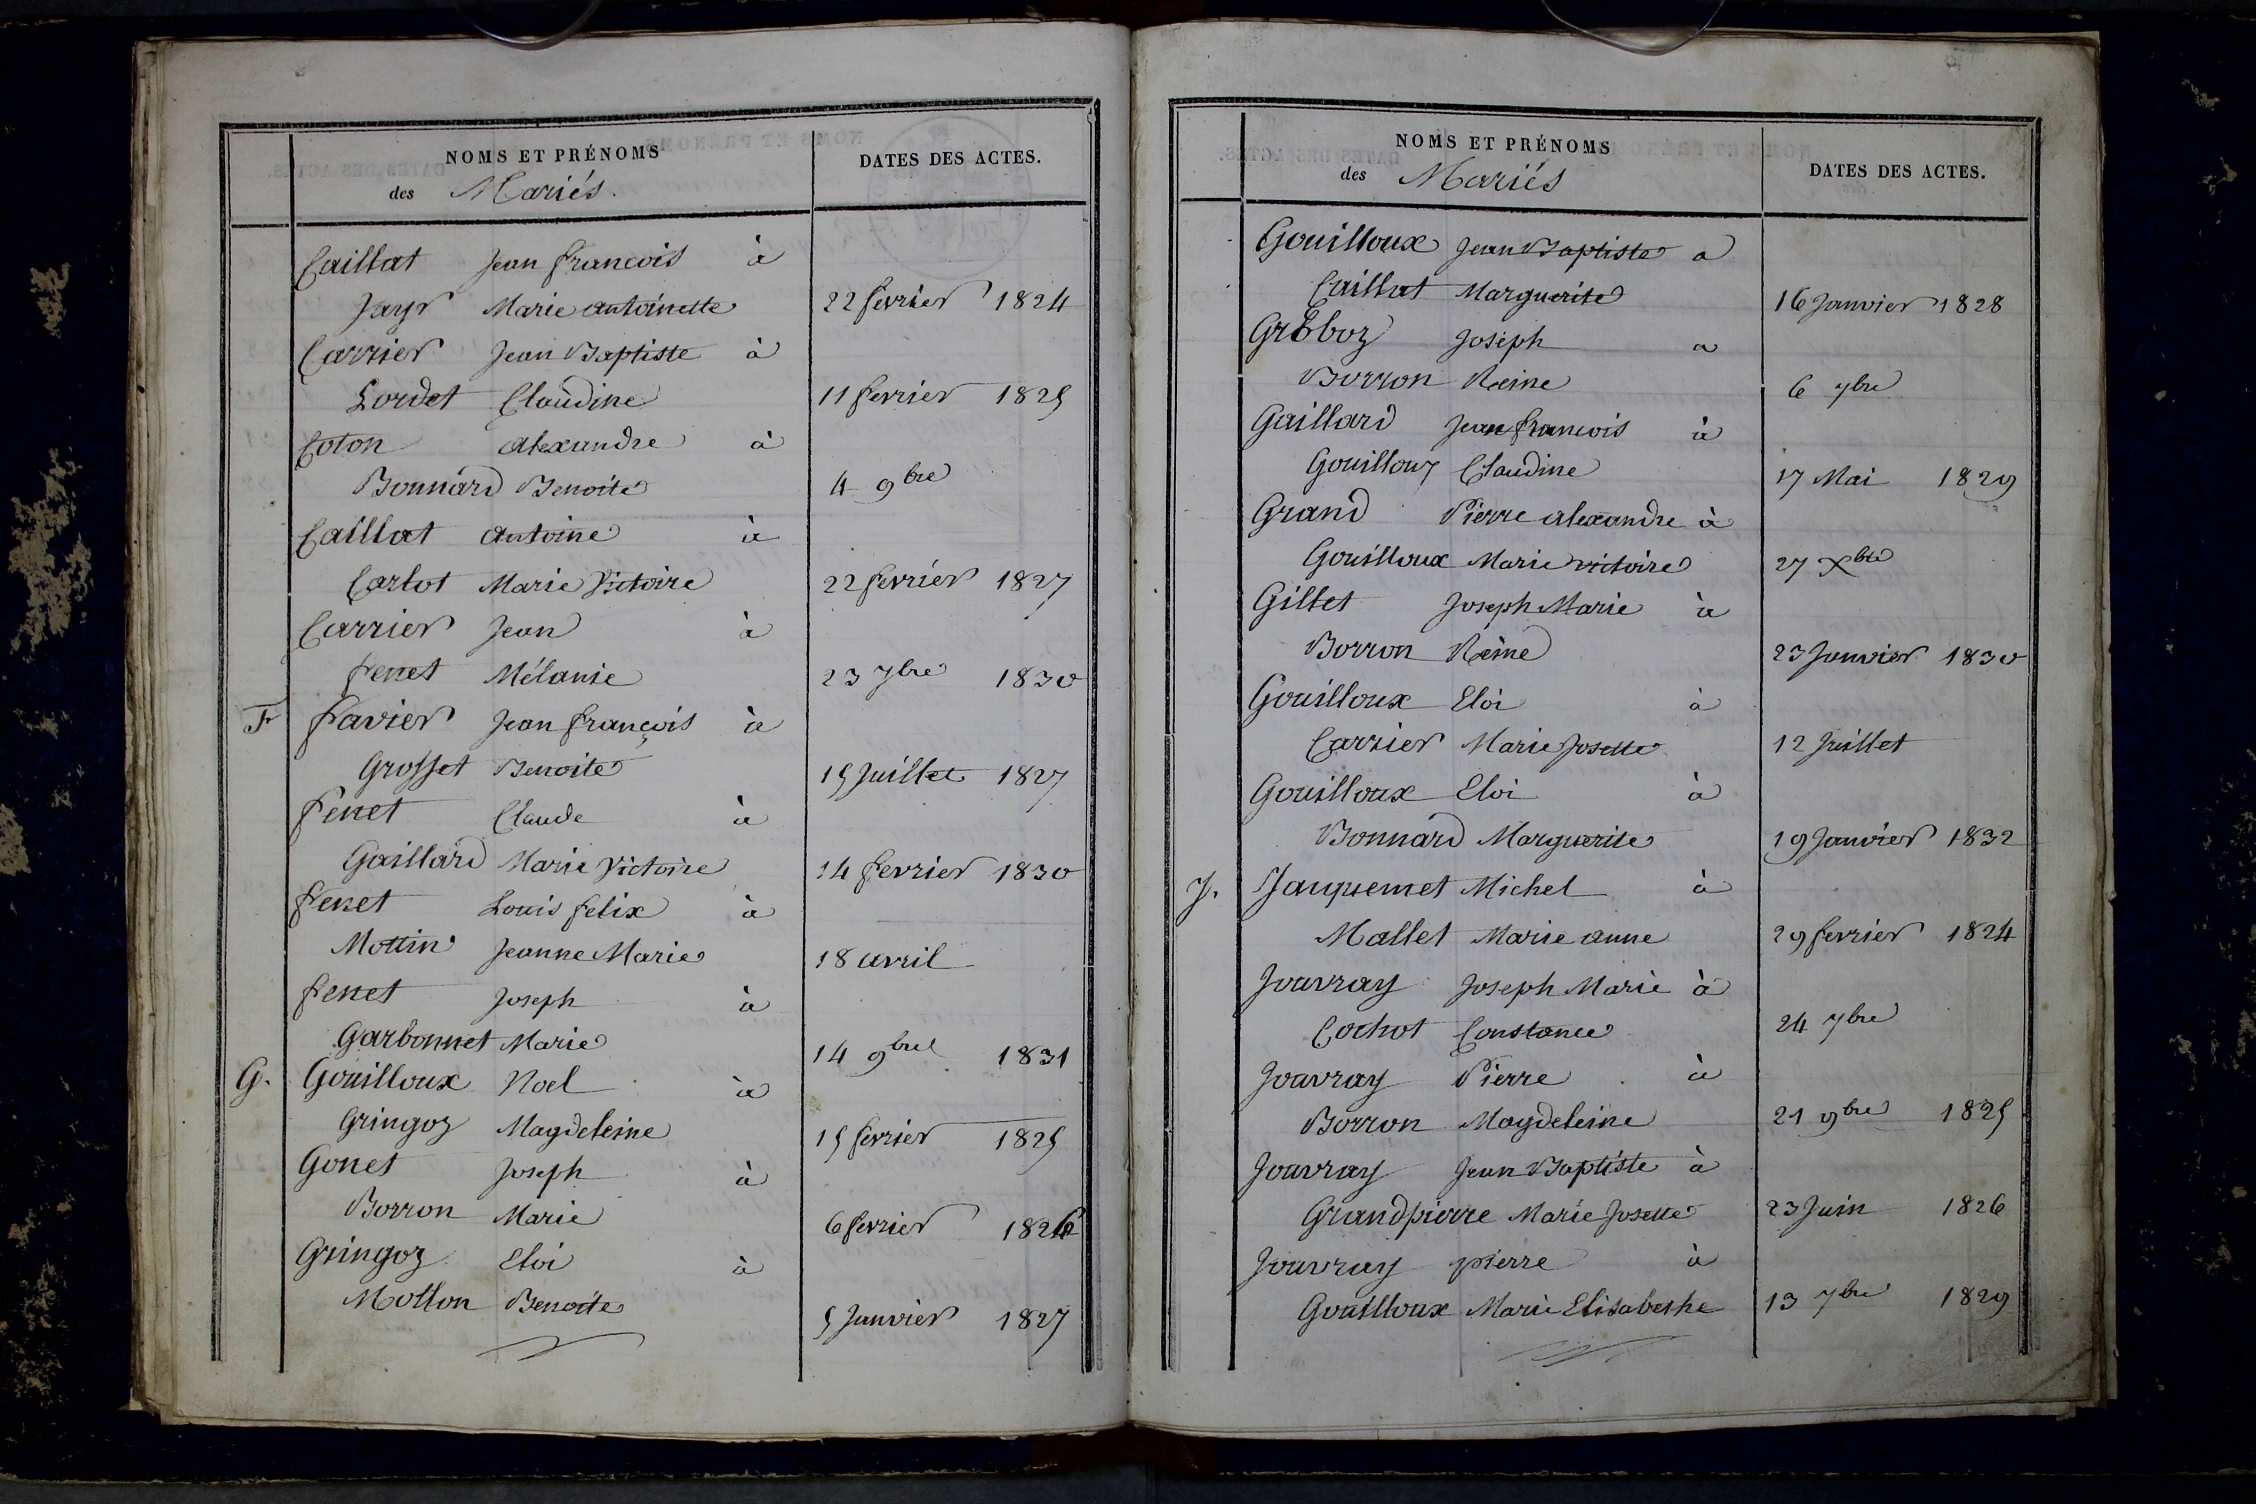 NOMS ET PRÉNOMS
des Mariés.
DATES DES ACTES.
Caillat Jean françois à
Jayr Marie antoinette 22 fevrier 1824
Carrier Jean Baptiste à
Lordet Claudine 11 fevrier 1825
Coton alexandre à
Bonnard Benoite 4 9bre
Caillat antoine à
Carlot Marie Victoire 22 fevrier 1827
Carrier Jean à
fenet Mélanie 23 7bre 1830
F favier Jean françois à
Grosset Benoite 15 Juillet 1827
fenet Claude à
Gaillard Marie Victoire 14 fevrier 1830
fenet Louis felix à
Mottin Jeanne Marie 18 avril
fenet Joseph à
Garbonnet Marie 14 9bre 1831
G. Gouilloux Noel à
Gringoz Magdeleine 15 fevrier 1825
Gonet Joseph à
Borron Marie 6 fevrier 1826
Gringoz Eloi à
Mollon Benoite 5 Janvier 1827
NOMS ET PRÉNOMS
des Mariés
DATES DES ACTES.
Gouilloux Jean Baptiste a
Caillat Marguerite 16 Janvier 1828
Joseph a
Borron Reine 6 7bre
Gaillard Jean francois à
Gouilloux Claudine 17 Mai 1829
Grand Pierre alexandre à
Gouilloux Marie victoire 27 Xbre
Gillet Joseph Marie à
Borron Reine 23 Janvier 1830
Gouilloux Eloi à
Carrier Marie Josette 12 Juillet
Gouilloux Eloi à
Bonnard Marguerite 19 Janvier 1832
J. Jauquemet Michel à
Mallet Marie anne 29 fevrier 1824
Jouvray Joseph Marie à
Cochot Constance 24 7bre
Jouvray Pierre à
Borron Magdeleine 21 9bre 1825
Jouvray Jean Baptiste à
Grandpierre Marie Josette 23 Juin 1826
Jouvray pierre à
Gouilloux Marie Elisabethe 13 7bre 1829